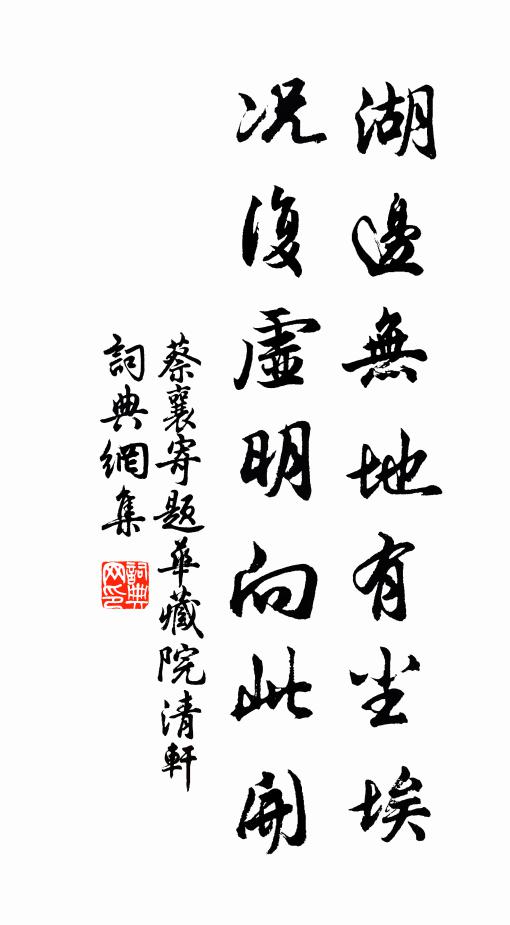 湖邊無地有尘埃
况復虛明向此開
蔡襄寄題華藏院清軒
詞典網集
詞典网印